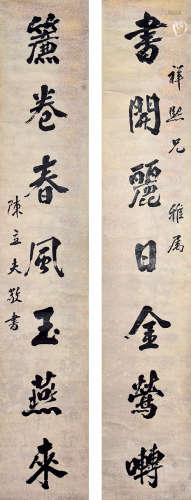 祥熙兄 雅屬
書開麗日金鶯囀
簾卷春風玉燕來
陳立夫敬書